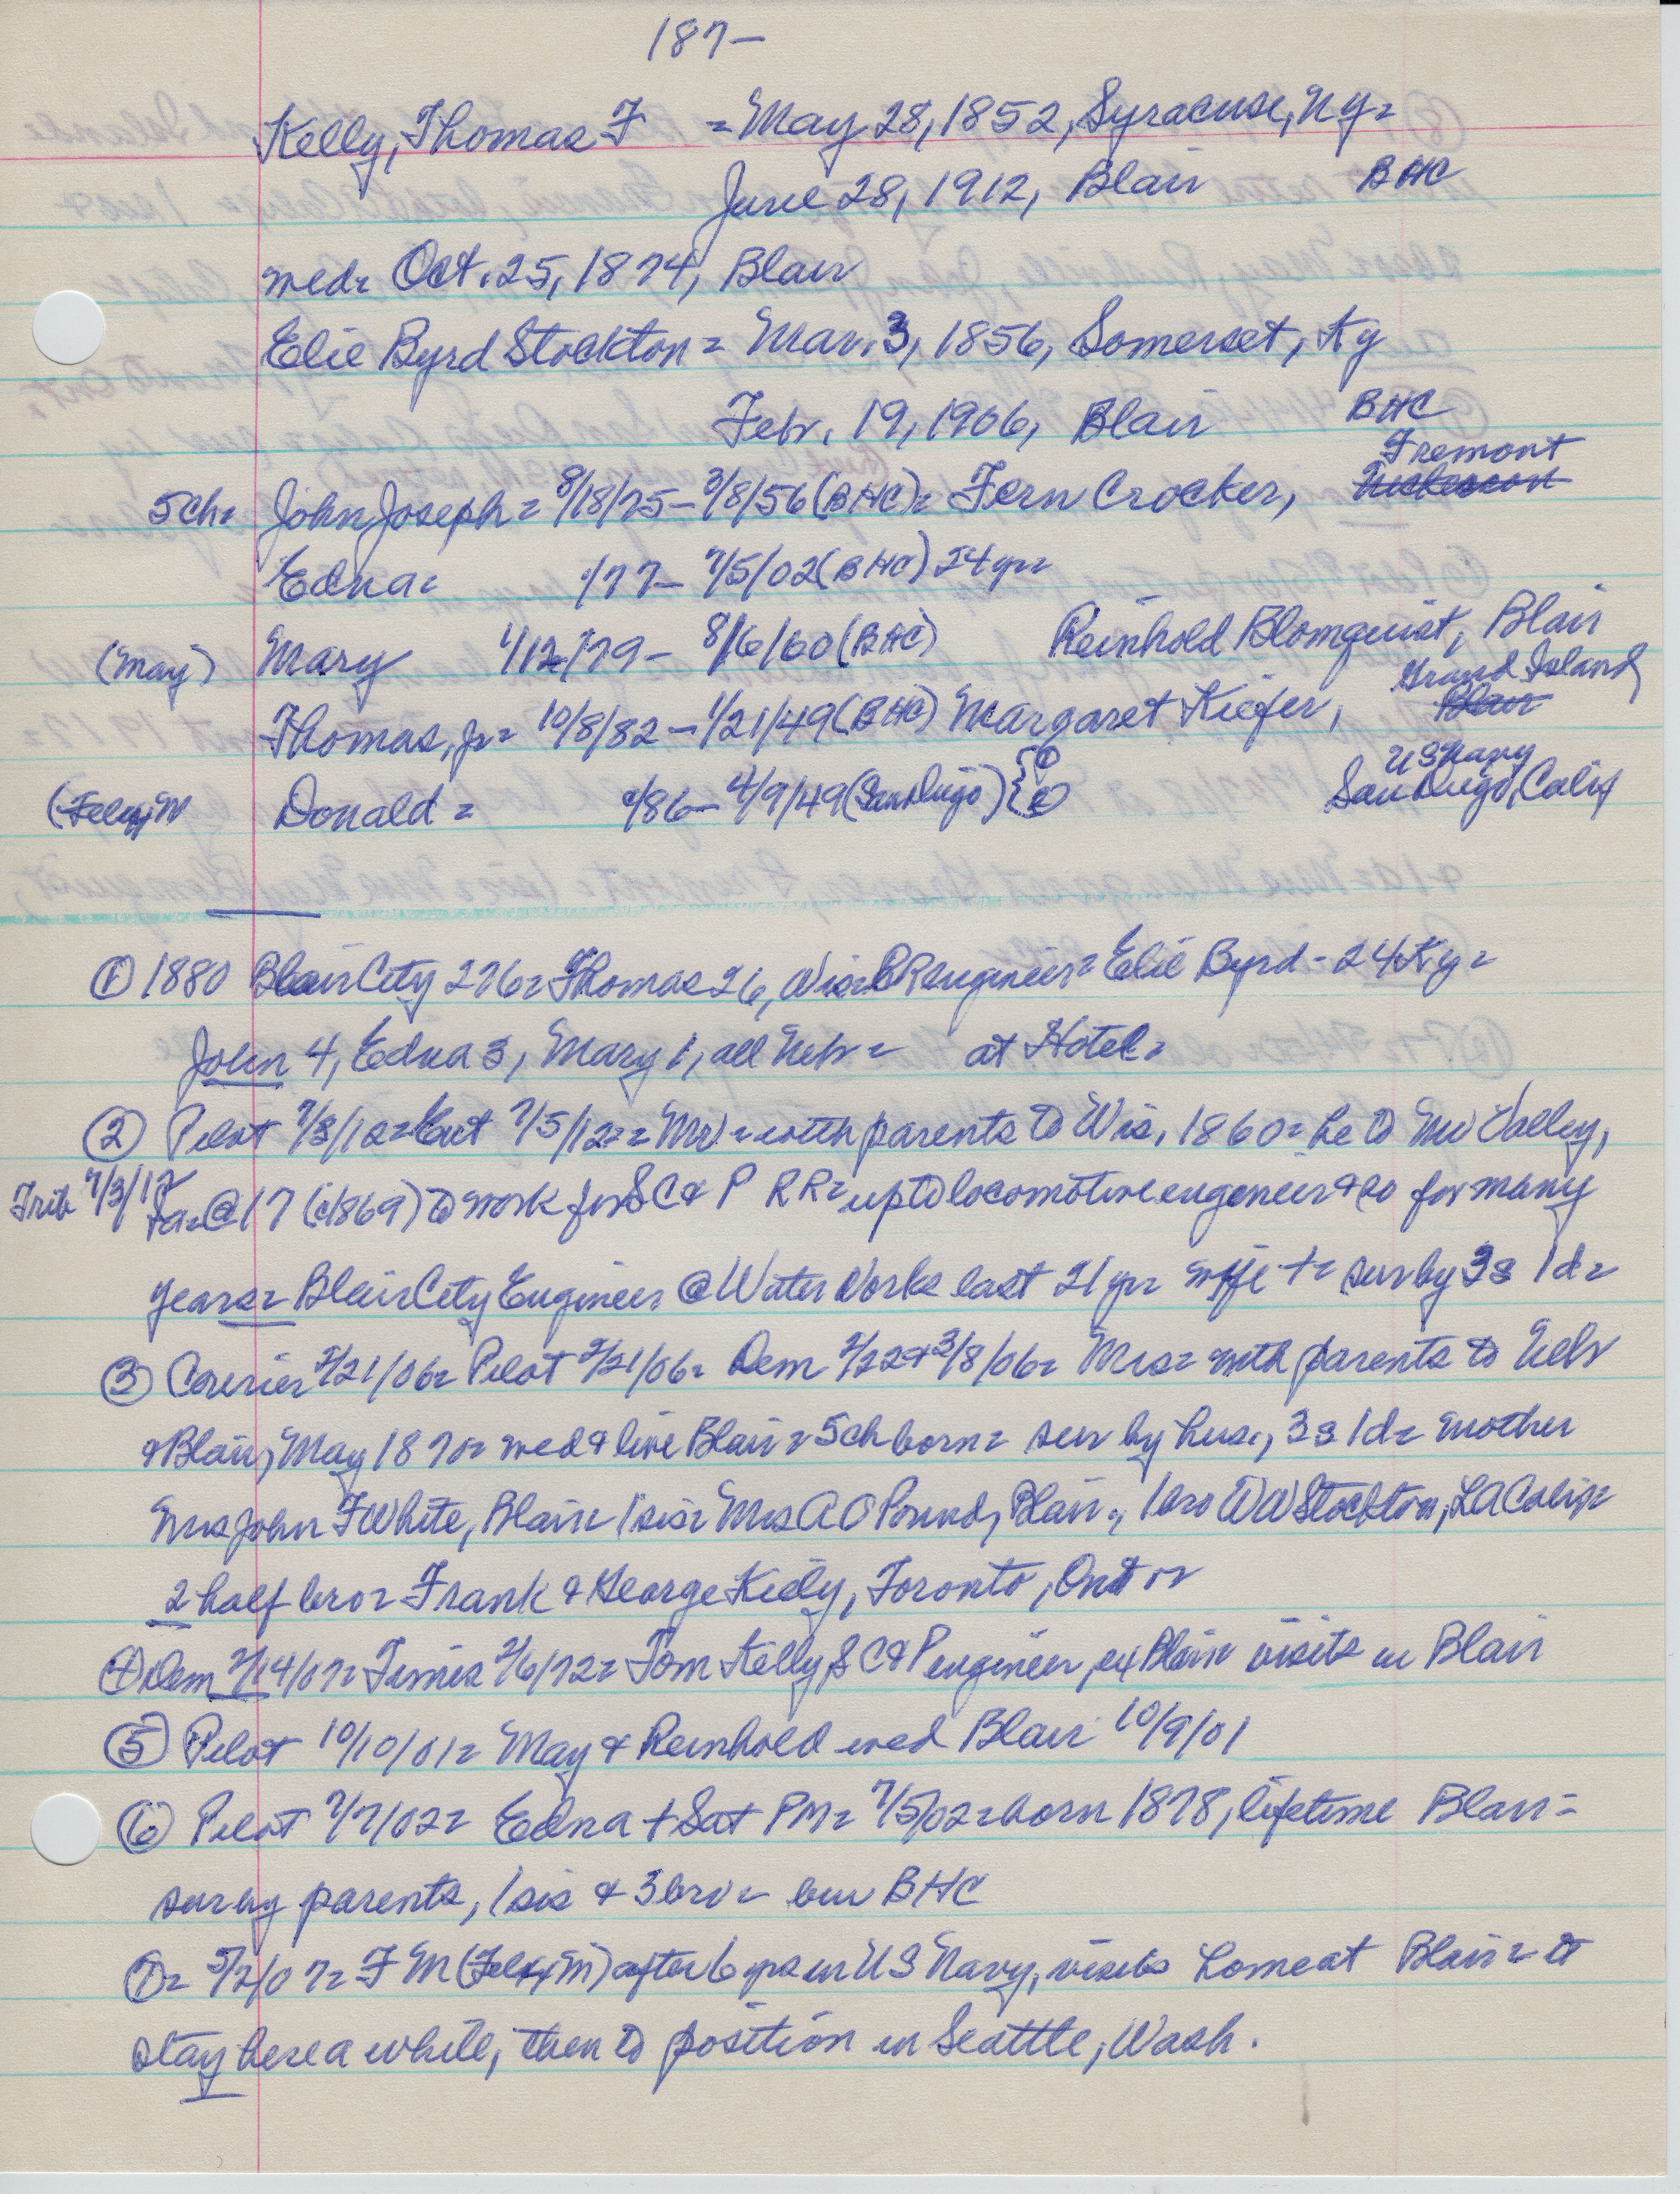 187-
Kelly, Thomas F = May 28, 1852, Syracuse, Ny =
June 28, 1912, Blair BHC
wed = Oct. 25, 1874, Blair
Elie Byrd Stockton = Mar. 3, 1856, Somerset, Ky
Febr. 19, 1906, Blair BHC
Fremont
5ch = John Joseph = 8/18/75 - 3/8/56 (BHC) = Fern Crocker,
Edna = /77 - 7/5/02 (BHC) 24 yr =
(May) Mary 1/12/79 - 8/6/60 (BHC) Reinhold Blomquist, Blair
Grand Island
Thomas, Jr = 10/8/82 - 1/21/49 (BHC) Margaret Kiefer, Blair
US Navy
Donald = /86 - 4/9/49 (San Diego) { ① ② San Diego, Calif
① 1880 Blair City 276 = Thomas 26, Wis = RR engineer = Elie Byrd - 24 Ky =
John 4, Edna 3, Mary 1, all Nebr = at Hotel =
② Pilot 7/3/12 = Ent 7/5/12 = Mr = with parents to Wis, 1860 = he to Mo Valley,
Trib 7/3/12 Ia = @ 17 (c1869) to work for SC & P RR = up to locomotive engineer & so for many
years = Blair City Engineer @ Water Works last 21 yr = wife + = sur by 3s 1d =
③ Courier 2/21/06 = Pilot 2/21/06 = Dem 2/22 & 3/8/06 = Mrs = with parents to Nebr
& Blair, May 1870 = wed & live Blair = 5ch born = sur by hus., 3s 1d = mother
Mrs John F White, Blair = 1 sis = Mrs A O Pound, Blair., 1 bro W W Stockton, LA Calif =
2 half bro = Frank & George Kiely, Toronto, Ont =
④ Dem 2/14/07 = Times 2/6/72 = Tom Kelly, SC&P engineer, ex Blair visits in Blair
⑤ Pilot 10/10/01 = May & Reinhold wed Blair 10/9/01
⑥ Pilot 7/7/02 = Edna + Sat PM = 7/5/02 = born 1878, lifetime Blair =
sur by parents, 1 sis & 3 bro = bur BHC
⑦ = 5/2/07 = F M (Felix M) after 6 yrs in US Navy, visits home at Blair = to
stay here a while, then to position in Seattle, Wash.